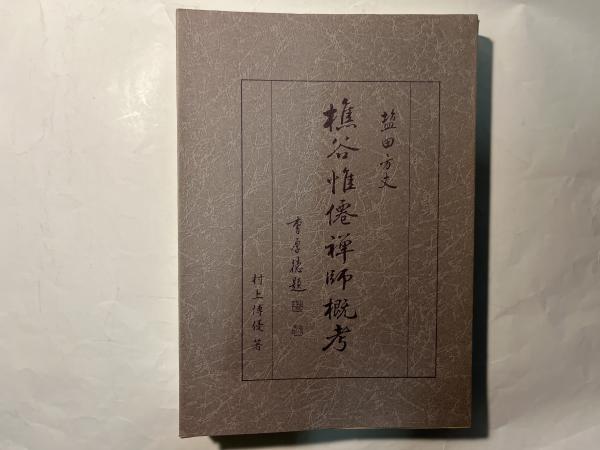 塩田方丈
樵谷惟僊禅師概考
李厚徳題
村上博優著